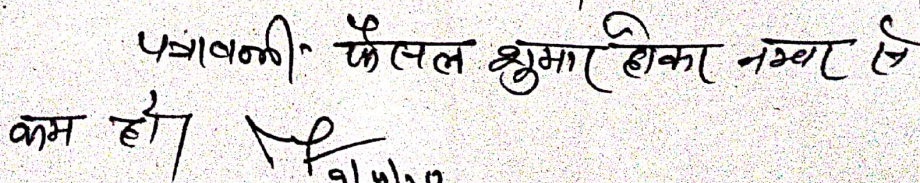 पत्रावली फैसल शुमार होकर नम्बर से
कम हो।